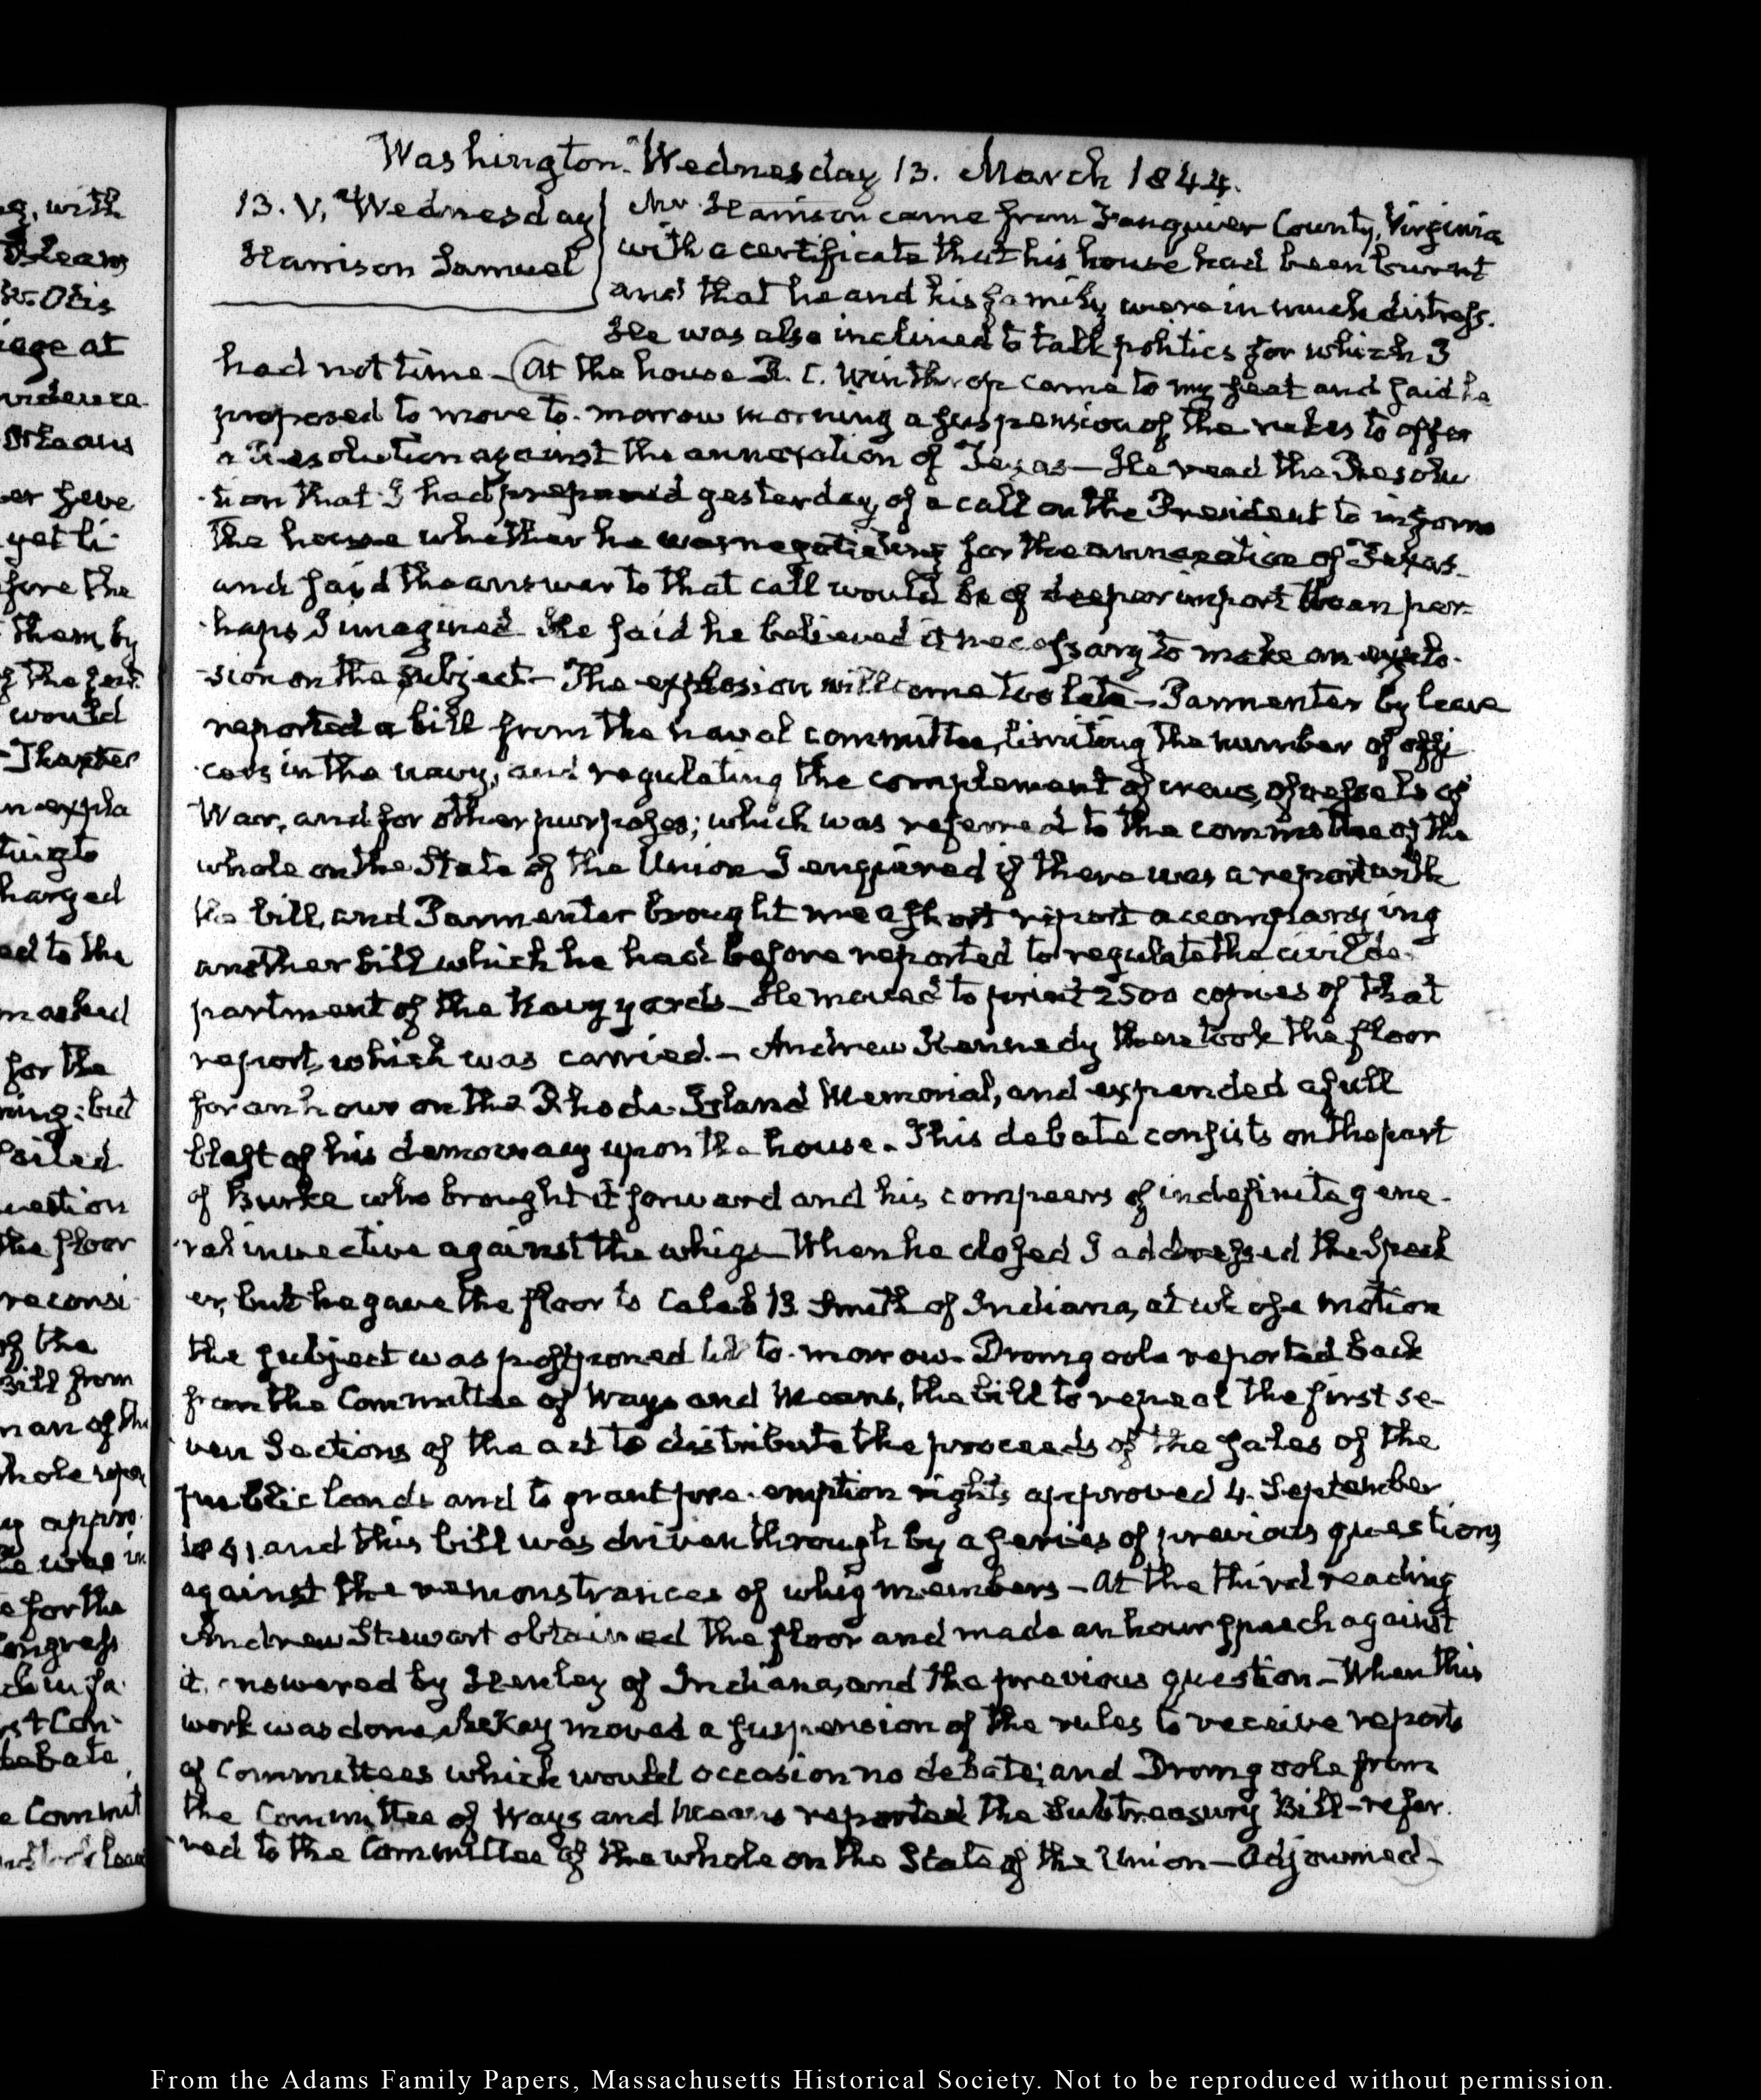 Washington. Wednesday 13. March 1844.
13. V. Wednesday
Harrison Samuel
Mr Harrison came from Fauquier County, Virginia
with a certificate that his house had been burnt
and that he and his family were in much distress.
He was also inclined to talk politics for which I
had not time — At the house R. C. Winthrop came to my seat and said he
proposed to move to-morrow morning a suspension of the rules to offer
a Resolution against the annexation of Texas — He read the Resolu
tion that I had prepared yesterday, of a call on the President to inform
the house whether he was negotiating for the annexation of Texas—
and said the answer to that call would be of deeper import than per-
haps I imagined. He said he believed it necessary to make an explo-
sion on the subject — The explosion will come too late — Parmenter by leave
reported a bill from the naval committee, limiting the number of offi
cers in the navy, and regulating the complement of crews, of vessels of
War, and for other purposes; which was referred to the committee of the
whole on the State of the Union I enquired if there was a report with
the bill, and Parmenter brought me a short report accompanying
another bill which he had before reported to regulate the civil de-
partment of the Navy yards — He moved to print 2500 copies of that
report, which was carried. — Andrew Kennedy then took the floor
for an hour on the Rhode-Island Memorial, and expended a full
blast of his democracy upon the house. This debate consists on the part
of Burke who brought it forward and his compeers of indefinite gene-
ral invective against the whigs — When he closed I addressed the Speak
er, but he gave the floor to Caleb B. Smith of Indiana, at whose motion
the subject was postponed till to-morrow. Dromgoole reported back
from the Committee of Ways and Means, the bill to repeal the first se-
ven Sections of the act to distribute the proceeds of the sales of the
public lands and to grant pre-emption rights approved 4. September
1841. and this bill was driven through by a series of previous questions
against the remonstrances of whig members — At the third reading
Andrew Stewart obtained the floor and made an hour speech against
it, answered by Henley of Indiana, and the previous question — When this
work was done, McKay moved a suspension of the rules to receive reports
of Committees which would occasion no debate; and Dromgoole from
the Committee of Ways and Means reported the Subtreasury Bill — refer-
red to the Committee of the whole on the State of the Union — Adjourned —
g, with
Otis
iage at
vidence
Orleans
yet li-
fore the
them by
would
Thaxter
n expla
ting to
harged
ed to the
masked
for the
ning: but
failed
uestion
the floor
reconsi
of the
Bill from
man of the
appro
e was in
e for the
Congress
st Con-
debate,
e Commit
From the Adams Family Papers, Massachusetts Historical Society. Not to be reproduced without permission.